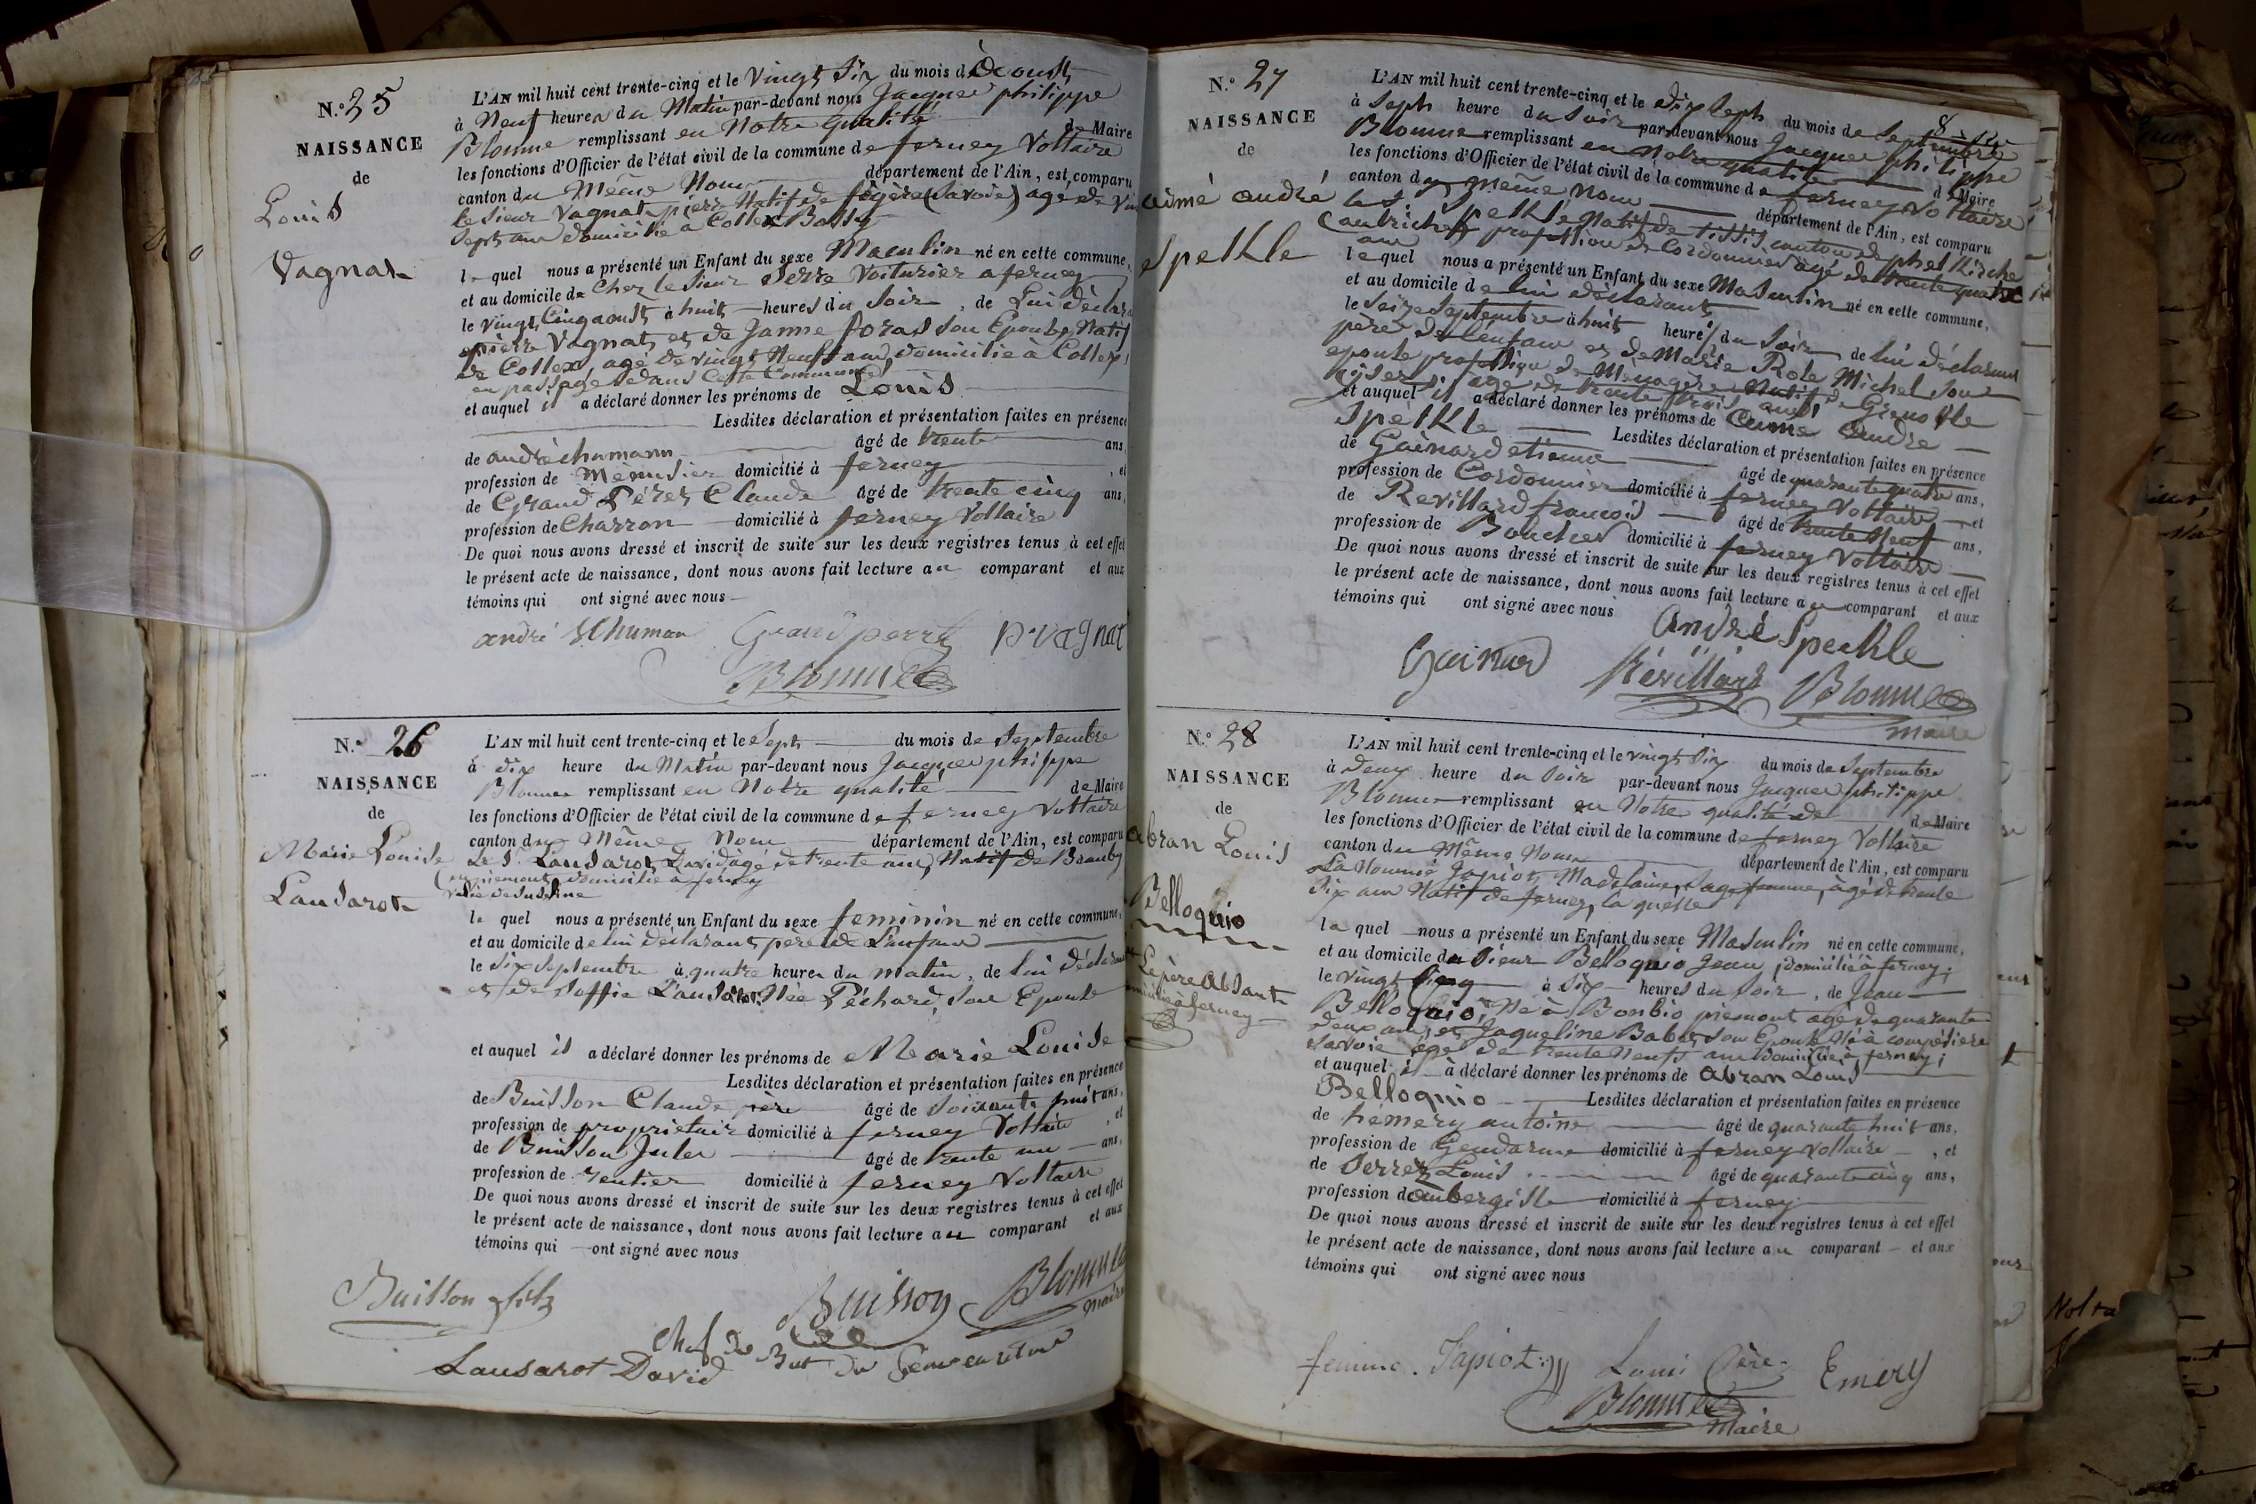 N.° 25
NAISSANCE
de
Louis
Vagnat
L'AN mil huit cent trente-cinq et le vingt Six du mois d'aoust
à Neuf heures du Matin par-devant nous Jacques philippe
Blonnes remplissant en Notre qualité de Maire
les fonctions d'Officier de l'état civil de la commune de ferney Voltaire
canton du Même Nom département de l'Ain, est comparu
le Sieur Vagnat pierre Natif de (Savoie) agé de
Sept ans domicilié a Collex Bossy
lequel nous a présenté un Enfant du sexe Masculin né en cette commune,
et au domicile de Chez le Sieur Serre Voiturier a ferney
le vingt Cinq aoust à huit heures du Soir, de Lui déclara
pierre Vagnat et de Janne foras son Epouse, Natif
de Collex, agé de vingt Neuf ans, domicilié à Collex,
en passage dans Cette Commune
et auquel il a déclaré donner les prénoms de Louis
Lesdites déclaration et présentation faites en présence
de andré chumann âgé de trente ans
profession de Menusier domicilié à ferney , et
de Grand Pérez Claude âgé de trente cinq ans,
profession de Charron domicilié à ferney Voltaire
De quoi nous avons dressé et inscrit de suite sur les deux registres tenus à cet effet
le présent acte de naissance, dont nous avons fait lecture au comparant et aux
témoins qui ont signé avec nous
andré schuman Grandperret p. vagnat
Blonnes
N.° 26
NAISSANCE
de
Marie Louise
Lausarot
L'AN mil huit cent trente-cinq et le Sept du mois de Septembre
à dix heure du Matin par-devant nous Jacques philippe
Blonnes remplissant en Notre qualité de Maire
les fonctions d'Officier de l'état civil de la commune de ferney Voltaire
canton du Même Nom département de l'Ain, est comparu
Le S.r Lausarot David âgé de trente ans, Natif de
domicilié a ferney
lequel nous a présenté un Enfant du sexe feminin né en cette commune,
et au domicile de lui déclarant, père de L'enfant
le Six Septembre à quatre heures du matin, de lui déclarant
et de Soffie Lausarot Née Péchard, Son Epouse
et auquel il a déclaré donner les prénoms de Marie Louise
Lesdites déclaration et présentation faites en présence
de Buisson Claude père âgé de Soixante huit ans,
profession de proprietaire domicilié à ferney Voltaire , et
de Buisson Jules âgé de trente un ans,
profession de rentier domicilié à ferney Voltaire
De quoi nous avons dressé et inscrit de suite sur les deux registres tenus à cet effet
le présent acte de naissance, dont nous avons fait lecture au comparant et aux
témoins qui ont signé avec nous
Buisson fils Buisson Blonnes
maire
Lausarot David
N.° 27
NAISSANCE
de
aimé andré
Spelkle
L'AN mil huit cent trente-cinq et le dix Sept du mois de Septembre
à Sept heure du Soir par-devant nous Jacques philippe
Blonnes remplissant en Notre qualité de Maire
les fonctions d'Officier de l'état civil de la commune de ferney Voltaire
canton du Même Nom département de l'Ain, est comparu
le S. Spelkle Natif de canton de
(autriche) profession de Cordonnier agé de trente quatre
ans
lequel nous a présenté un Enfant du sexe Masculin né en cette commune,
et au domicile de lui déclarant
le Seize Septembre à huit heures du Soir de lui déclarant
père de l'enfant et de Marie Rose Michel Son
epouse profession de Ménagère Natif de Grenoble
agé de trente trois ans
et auquel il a déclaré donner les prénoms de aime andre
Spelkle
Lesdites déclaration et présentation faites en présence
de Gainard etienne âgé de quarante quatre ans,
profession de Cordonnier domicilié à ferney Voltaire , et
de Revillard francois âgé de trente Neuf ans,
profession de Boucher domicilié à ferney Voltaire
De quoi nous avons dressé et inscrit de suite sur les deux registres tenus à cet effet
le présent acte de naissance, dont nous avons fait lecture au comparant et aux
témoins qui ont signé avec nous
André Speckle
Gainard Révillard Blonnes
maire
N.° 28
NAISSANCE
de
abran Louis
Belloquio
Le père absant
domicilié a ferney
L'AN mil huit cent trente-cinq et le vingt Six du mois de Septembre
à deux heure du Soir par-devant nous Jacques philippe
Blonnes remplissant en Notre qualité de de Maire
les fonctions d'Officier de l'état civil de la commune de ferney Voltaire
canton du Même Nom département de l'Ain, est comparu
La Nommé Japiot, Madelaine, Sage femme, âgé de trente
Six ans Natif de ferney, la quelle
laquel nous a présenté un Enfant du sexe Masculin né en cette commune,
et au domicile du Sieur Belloquio Jean, domicilié à ferney,
le vingt Cinq à Six heures du Soir, de Jean
Belloquio, Né à Bonbio piémont agé de quarante
deux ans, et Jaqueline Babet Son Epouse Né à compésiere
Savoie agé de trente Neuf ans domicilié à ferney;
et auquel il a déclaré donner les prénoms de abran Louis
Belloquio Lesdites déclaration et présentation faites en présence
de hémery antoine âgé de quarante huit ans,
profession de Gendarme domicilié à ferney Voltaire , et
de Serrez Louis âgé de quarante cinq ans,
profession d aubergiste domicilié à ferney
De quoi nous avons dressé et inscrit de suite sur les deux registres tenus à cet effet
le présent acte de naissance, dont nous avons fait lecture au comparant et aux
témoins qui ont signé avec nous
femme Japiot Loui Emery
Blonnes
Maire